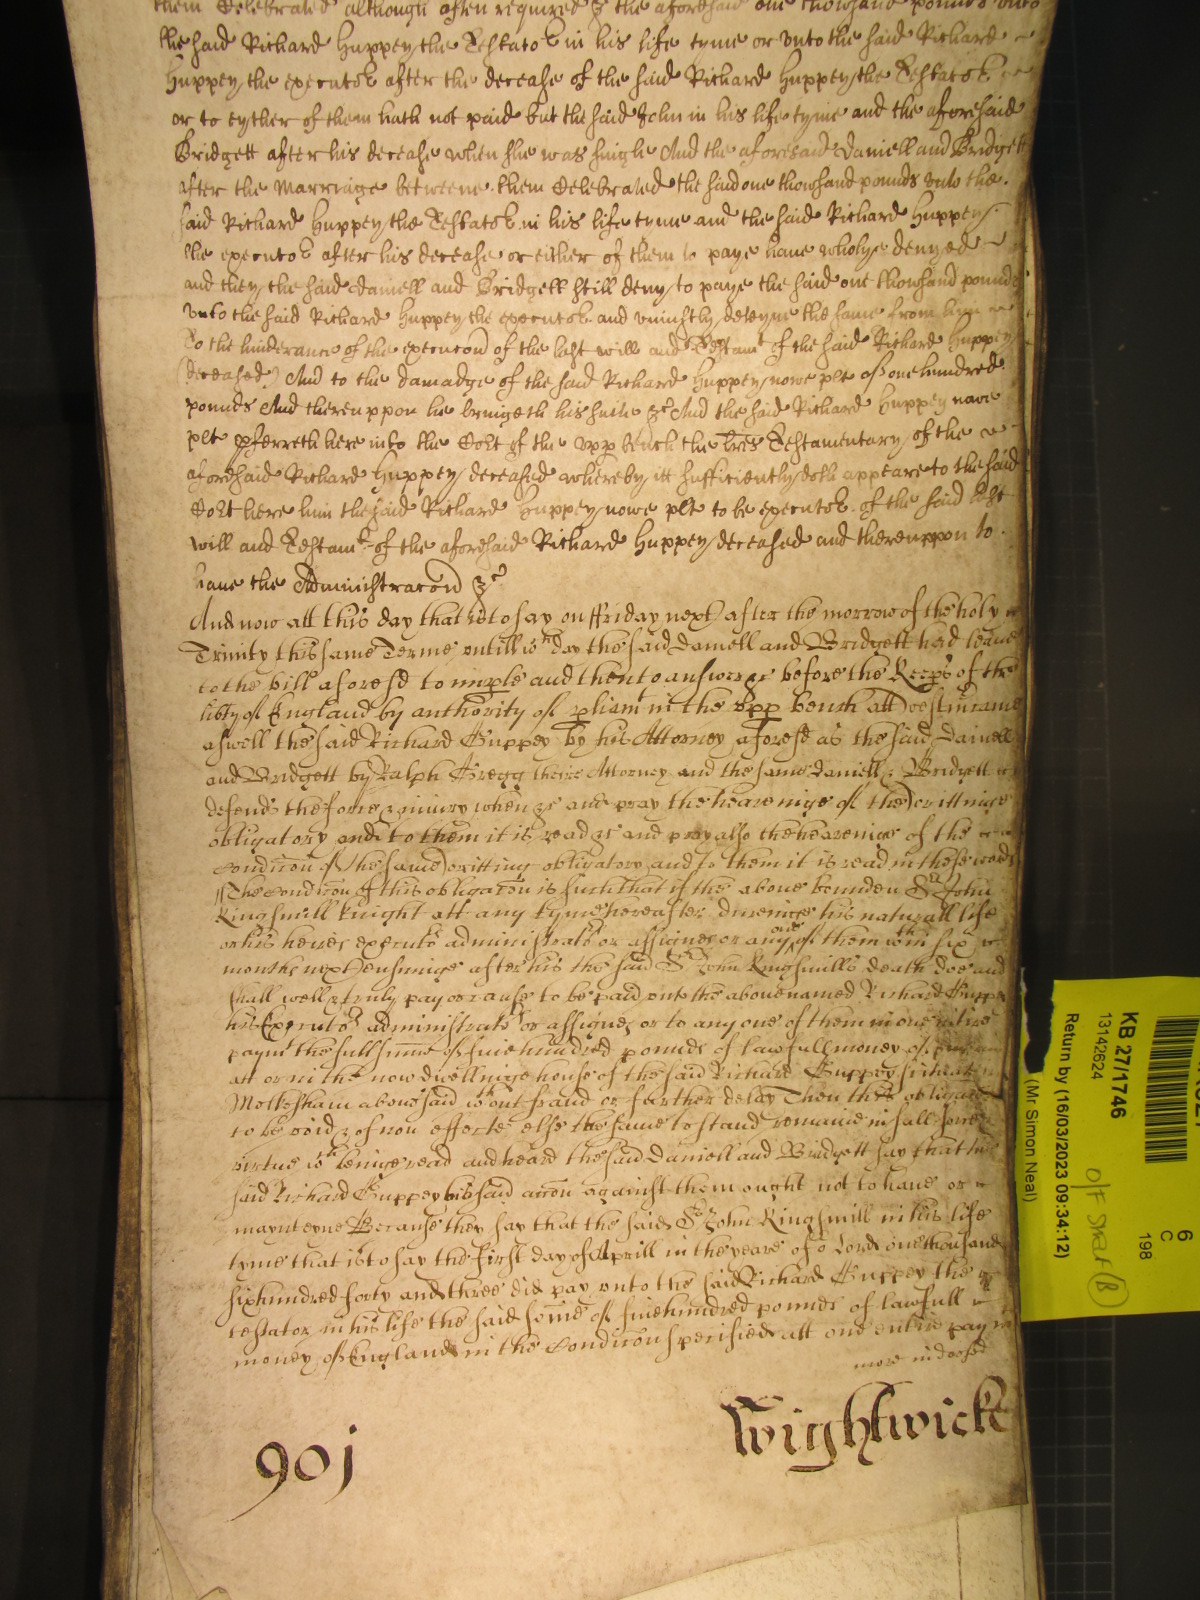 them Celebrated although often required &c the aforesaid one thousand pounds unto
the said Richard Guppey the Testator in his life tyme or vnto the said Richard
Guppey the executor after the decease of the said Richard Guppey the Testator
or to eyther of them hath not paid but the said John in his life tyme and the aforesaid
Bridgett after his decease when she was single And the aforesaid Daniell and Bridgett
after the Marriage betweene them Celebrated the said one thousand pounds vnto the
said Richard Guppey the Testator in his life tyme and the said Richard Guppey
the executor after his decease or either of them to paye haue wholye denyed
and they the said daniell and Bridgett still deny to paye the said one thousand pounds
vnto the said Richard Guppey the executor and vniustly deteyne the same from him
To the hinderance of the execucon of the last will and Testamt of the said Richard Guppey
deceased And to the damadge of the said Richard Guppey nowe plt of one hundred
pounds And thereuppon he bringeth his suite &c And the said Richard Guppey nowe
plt pferreth here into the Cort of the vpp bench the lres Testamentary of the
aforesaid Richard Guppey deceased whereby itt sufficiently doth appeare to the said
Cort here him the said Richard Guppey nowe plt to be executor of the said last
will and Testamt of the aforesaid Richard Guppey deceased and thereuppon to
haue the Administracon &c
And now att this day that is to say on ffriday next after the morrow of the holy
Trinity this same Terme untill wch day the said Daniell and Bridgett had leaue
to the bill aforesd to imple and then to answer &c before the Keeps of the
libty of England by authority of pliamt in the vpp bench att Westm came
aswell the said Richard Guppey by his Attorney aforesd as the said Daniell
and Bridgett by Ralph Gregg theire Attorney and the same daniell & Bridgett
defend the force & iniury when &c and pray the heareinge of the writtinge
obligatory and to them it is read &c and pray also the heareinge of the
condicon of the same writting obligatory and to them it is read in these words
The condicon of this obligacon is such that if the aboue bounden Sr John
Kingsmill knight att any tyme hereafter dureinge his naturall life
or his heires executrs administratrs or assignes or any one of them wthin six
months next ensuinge after his the said Sr John Kingsmills death doe and
shall well & truly pay or cause to be paid unto the abouenamed Richard Guppey
his Executrs administratrs or assignes or to any one of them in one entire
paymt the full sume of fiue hundred pounds of lawfull money of
att or in the now dwellinge house of the said Richard Guppey scituate in
Melkesham abouesaid wthout fraud or further delay Then this obligacon
to be void & of non effecte else the same to stand & remaine in full force &
virtue wch beinge read and heard the said Daniell and Bridgett say that the
said Richard Guppey his said accon against them ought not to haue or
maynteyne Because they say that the said Sr John Kingsmill in his life
tyme that is to say the first day of Aprill in the yeare of or Lord one thousand
sixhundred forty and three did pay unto the said Richard Guppey the
testator in his life the said some of fiuehundred pounds of lawfull
money of England in the condicon specified att one entire paymt
more indorsed
901
Wightwicke
KB 27/1746
13142624
Return by (16/03/2023 09:34:12)
(Mr. Simon Neal)
6
C
198